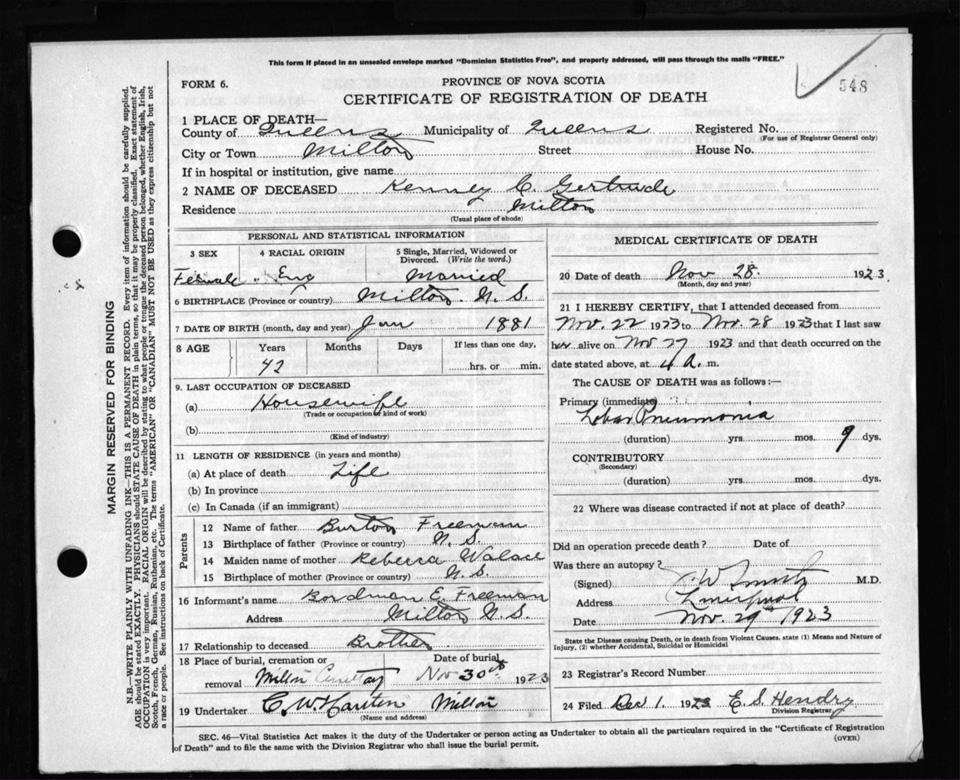 This form if placed in an unsealed envelope marked "Dominion Statistics Free", and properly addressed, will pass through the mails "FREE."
548
FORM 6.
PROVINCE OF NOVA SCOTIA
CERTIFICATE OF REGISTRATION OF DEATH
1 PLACE OF DEATH—
County of Queens Municipality of Queens Registered No.
(For use of Registrar General only)
City or Town Milton Street House No.
If in hospital or institution, give name
2 NAME OF DECEASED Kenney C. Gertrude
Residence Milton
(Usual place of abode)
PERSONAL AND STATISTICAL INFORMATION
3 SEX 4 RACIAL ORIGIN 5 Single, Married, Widowed or Divorced. (Write the word.)
Female Eng Married
6 BIRTHPLACE (Province or country) Milton N.S.
7 DATE OF BIRTH (month, day and year) Jan 1881
8 AGE Years Months Days If less than one day,
42 hrs. or min.
9. LAST OCCUPATION OF DECEASED
(a) Housewife
(Trade or occupation or kind of work)
(b)
(Kind of industry)
11 LENGTH OF RESIDENCE (in years and months)
(a) At place of death Life
(b) In province
(c) In Canada (if an immigrant)
Parents
12 Name of father Burton Freeman
13 Birthplace of father (Province or country) N.S.
14 Maiden name of mother Rebecca Walace
15 Birthplace of mother (Province or country) N.S.
16 Informant's name Bordman E. Freeman
Address Milton N.S.
17 Relationship to deceased Brother
18 Place of burial, cremation or removal Milton Cemetary
Date of burial
Nov 30th 1923
19 Undertaker C. W. Milton
(Name and address)
MEDICAL CERTIFICATE OF DEATH
20 Date of death Nov 28. 1923
(Month, day and year)
21 I HEREBY CERTIFY, that I attended deceased from
Nov. 22 1923 to Nov. 28 1923 that I last saw
her alive on Nov 27 1923 and that death occurred on the
date stated above, at 4 a. m.
The CAUSE OF DEATH was as follows:—
Primary (immediate)
Lobar Pneumonia
(duration) yrs. mos. 9 dys.
CONTRIBUTORY
(Secondary)
(duration) yrs. mos. dys.
22 Where was disease contracted if not at place of death?
Did an operation precede death? Date of
Was there an autopsy?
(Signed) M.D.
Address Liverpool
Date Nov. 29th 1923
State the Disease causing Death, or in death from Violent Causes, state (1) Means and Nature of
Injury, (2) whether Accidental, Suicidal or Homicidal
23 Registrar's Record Number
24 Filed Dec 1. 1923 E. S. Hendry
Division Registrar
SEC. 46—Vital Statistics Act makes it the duty of the Undertaker or person acting as Undertaker to obtain all the particulars required in the "Certificate of Registration
of Death" and to file the same with the Division Registrar who shall issue the burial permit.
(OVER)
MARGIN RESERVED FOR BINDING
N.B.—WRITE PLAINLY WITH UNFADING INK—THIS IS A PERMANENT RECORD. Every item of information should be carefully supplied.
AGE should be stated EXACTLY. PHYSICIANS should STATE CAUSE OF DEATH in plain terms, so that it may be properly classified. Exact statement of
OCCUPATION is very important. RACIAL ORIGIN will be described by stating to what people or tongue the deceased person belonged, whether English, Irish,
Scotch, French, German, Russian, Ruthenian, etc. The terms "AMERICAN" OR "CANADIAN" MUST NOT BE USED as they express citizenship but not
a race or people. See instructions on back of Certificate.